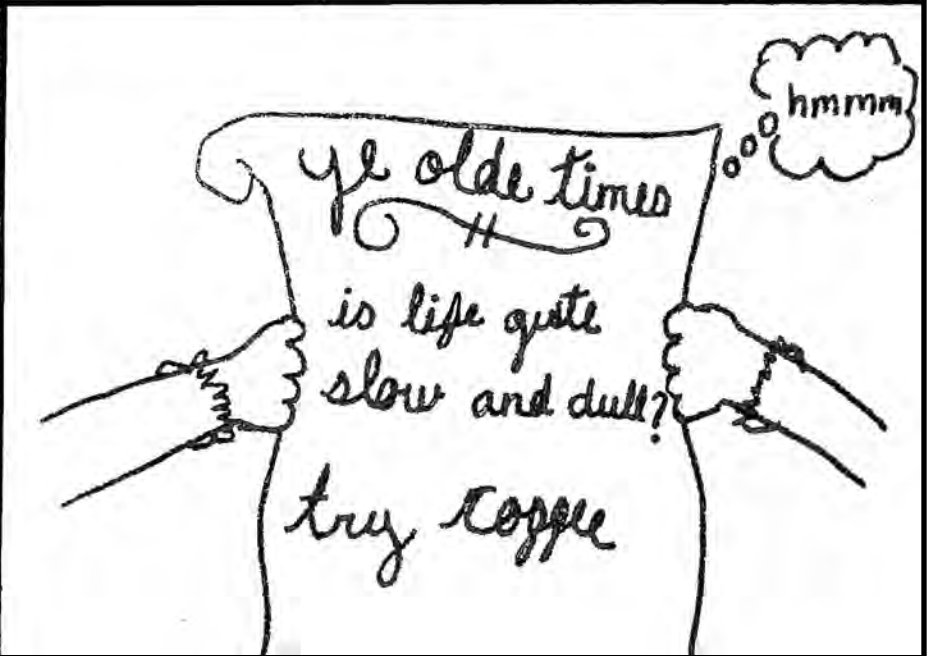 hmmm
ye olde times
is life quite
slow and dull?
try coffee